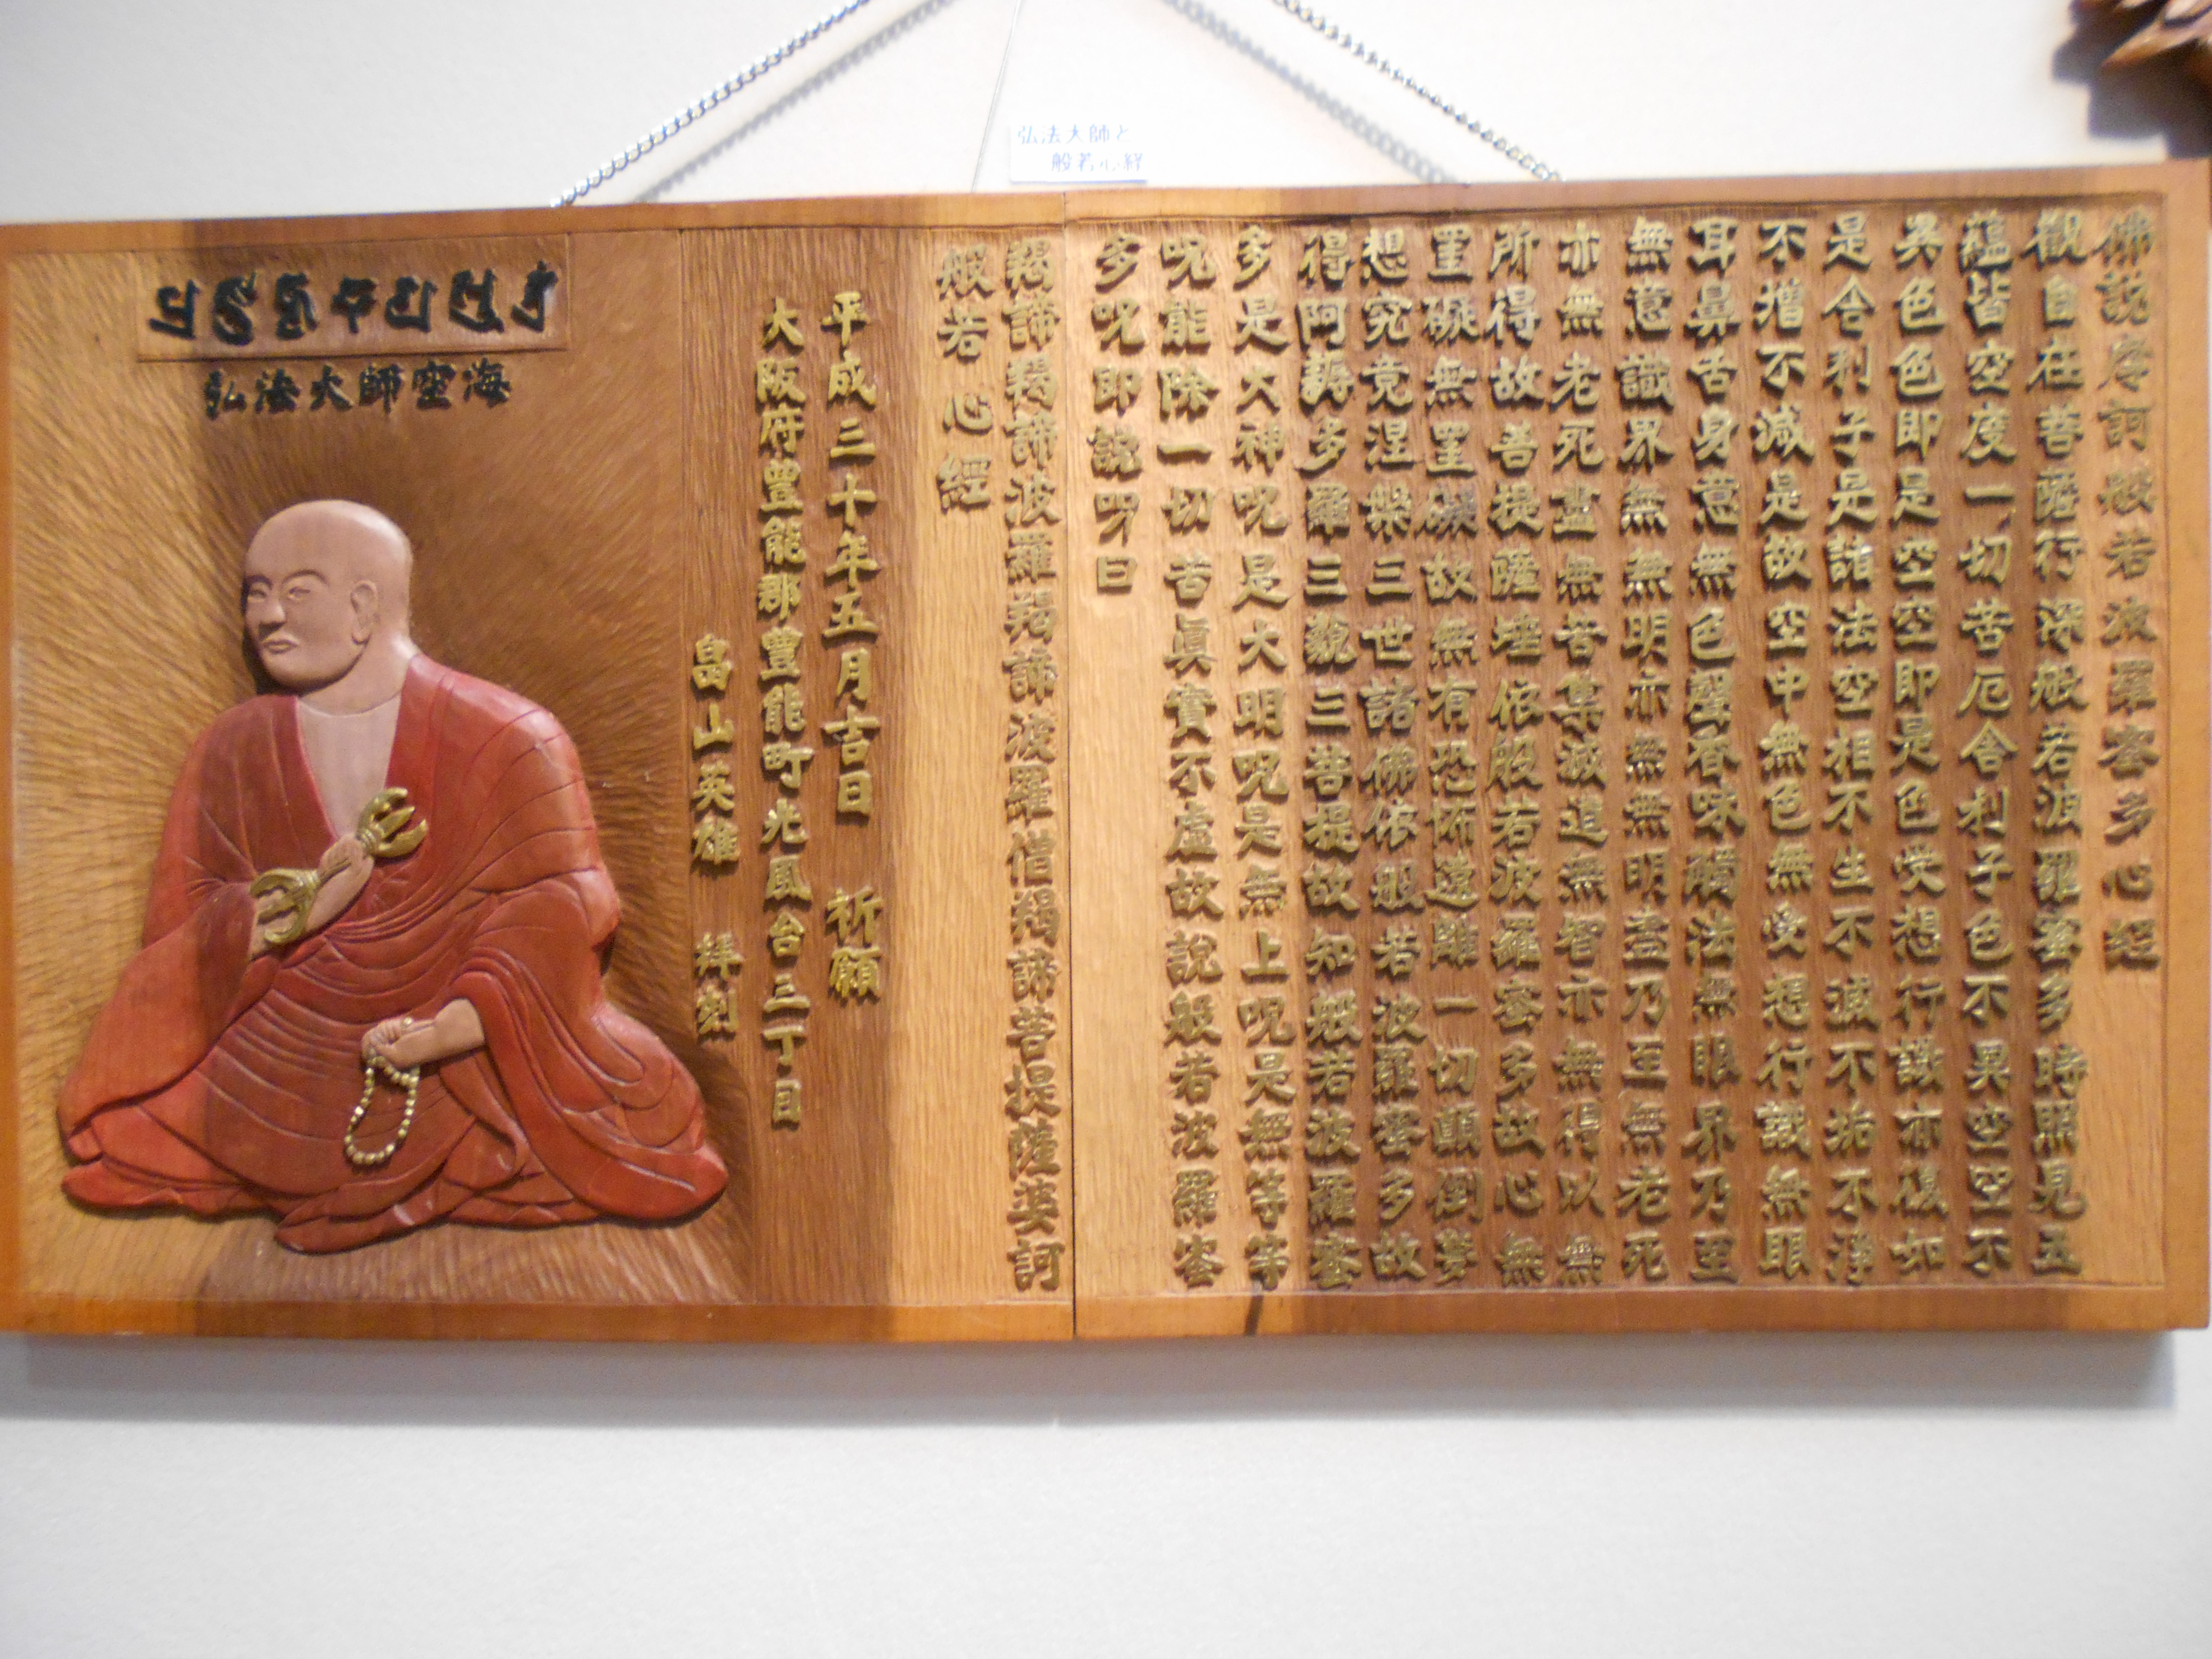 弘法大師と
般若心経
佛説摩訶般若波羅蜜多心經
觀自在菩薩行深般若波羅蜜多時照見五
蘊皆空度一切苦厄舎利子色不異空空不
異色色即是空空即是色受想行識亦復如
是舎利子是諸法空相不生不滅不垢不淨
不増不減是故空中無色無受想行識無眼
耳鼻舌身意無色聲香味觸法無眼界乃至
無意識界無無明亦無無明盡乃至無老死
亦無老死盡無苦集滅道無智亦無得以無
所得故菩提薩埵依般若波羅蜜多故心無
罣礙無罣礙故無有恐怖遠離一切顛倒夢
想究竟涅槃三世諸佛依般若波羅蜜多故
得阿耨多羅三藐三菩提故知般若波羅蜜
多是大神呪是大明呪是無上呪是無等等
呪能除一切苦眞實不虚故説般若波羅蜜
多呪即説呪曰
羯諦羯諦波羅羯諦波羅僧羯諦菩提薩婆訶
般若心經
平成三十年五月吉日 祈願
大阪府豊能郡豊能町光風台三丁目
畠山英雄 拝刻
弘法大師空海